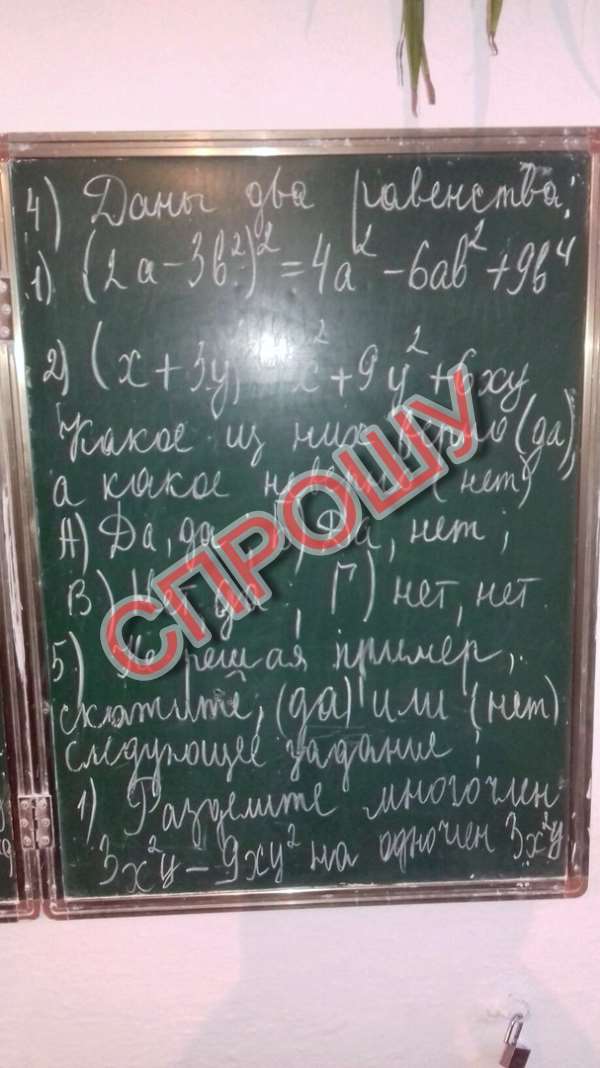 4) Даны два равенства:
1) (2a-3b²)²=4a²-6ab²+9b⁴
2) (x+3y) x²+9y²+6xy
Какое из них верно (да),
а какое (нет)
А) Да, да; Да, нет;
В) Нет, да; Г) нет, нет.
5) Не решая пример,
скажите, (да) или (нет)
следующее задание:
1) Разделите многочлен
3x²y-9xy² на одночлен 3x²y
СПРОШУ